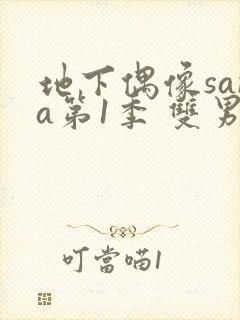 地下偶像san
a第1季 雙男
叮當喵1